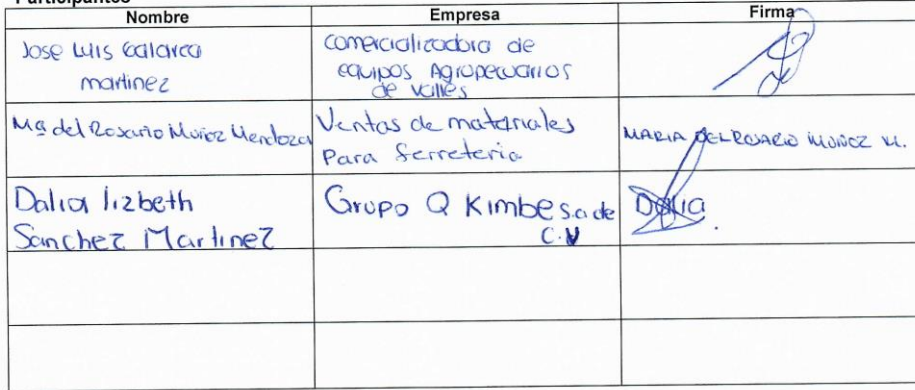 Participantes
Nombre Empresa Firma
Jose Luis Galarca
martinez
comercializadora de
equipos Agropecuarios
de valles
Ma del Rosario Muñoz Mendoza
Ventas de materiales
Para ferreteria
MARIA DEL ROSARIO MUÑOZ M.
Dalia lizbeth
Sanchez Martinez
Grupo Q Kimbe s.a de
C.V
Dalia